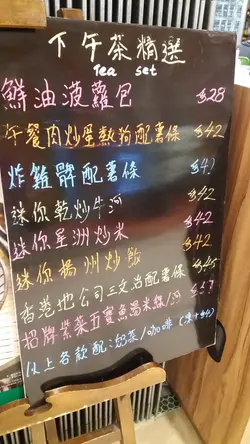 下午茶精選
Tea set
鮮油菠蘿包 $28
午餐肉炒蛋熱狗配薯條 $42
炸雞髀配薯條
迷你乾炒牛河 $42
迷你星洲炒米 $42
迷你揚州炒飯 $42
香港地公司三文治配薯條 $45
招牌紫菜五寶魚湯米線/河
以上各款配：奶茶/咖啡（凍+$4）